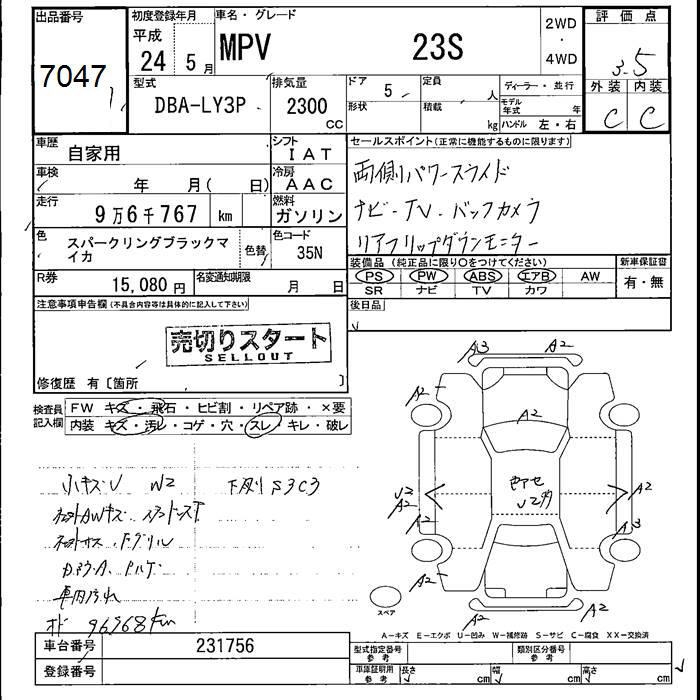 出品番号
7047
初度登録年月
平成
24 5月
車名・グレード
MPV 23S
2WD
・
4WD
評価点
3.5
外装 内装
C C
型式
DBA-LY3P
排気量
2300
CC
ドア 5
形状
定員 人
積載 kg
ディーラー・並行
モデル年式 年
ハンドル 左・右
車歴
自家用
シフト
IAT
車検
年 月( 日)
冷房
AAC
走行
9万6千767 km
燃料
ガソリン
色
スパークリングブラックマイカ
色替
色コード
35N
R券
15,080 円
名変通知期限
月 日
セールスポイント(正常に機能するものに限ります)
両側パワースライド
ナビ-TV-バックカメラ
リアフリップダウンモニター
装備品(純正品に限り○をつけてください)
PS PW ABS エアB AW
SR ナビ TV カワ
新車保証書
有・無
注意事項申告欄(不具合内容等は具体的に記入して下さい)
後日品
売切りスタート
SELLOUT
修復歴 有〔箇所 〕
検査員記入欄
FW キズ・飛石・ヒビ割・リペア跡・×要
内装 キズ・汚レ・コゲ・穴・スレ・キレ・破レ
小キズU W2 下廻りS3C3
車内汚れ
96968km
A3 A2
A2
A2
A2
U2
A2
A2
A2
A2
A3
A2
A2
A2
A2
スペア
A-キズ E-エクボ U-凹み W-補修跡 S-サビ C-腐食 XX-交換済
車台番号
231756
登録番号
型式指定番号
参考
類別区分番号
参考
車庫証明用
参考
長さ cm 幅 cm 高さ cm